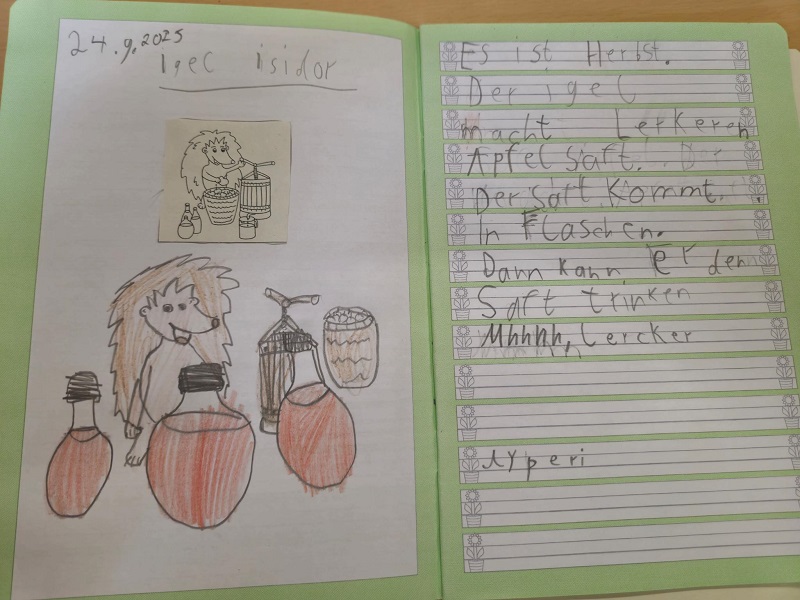 24.9.2025
Igel isidor
Es ist Herbst.
Der igel
macht Lerkeren
Apfel saft. Der
Der saft kommt.
In Flaschen.
Dann kann Er den
Saft trinken
Mhhhh, Lercker